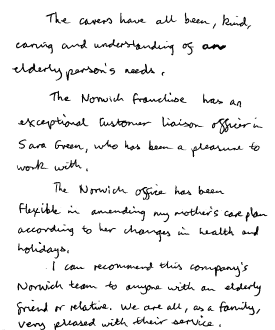 The carers have all been, kind,
caring and understanding of an
elderly person's needs.
The Norwich franchise has an
exceptional Customer liaison officer in
Sara Green, who has been a pleasure to
work with.
The Norwich office has been
flexible in amending my mother's care plan
according to her changes in health and
holidays.
I can recommend this company's
Norwich team to anyone with an elderly
friend or relative. We are all, as a family,
very pleased with their service.